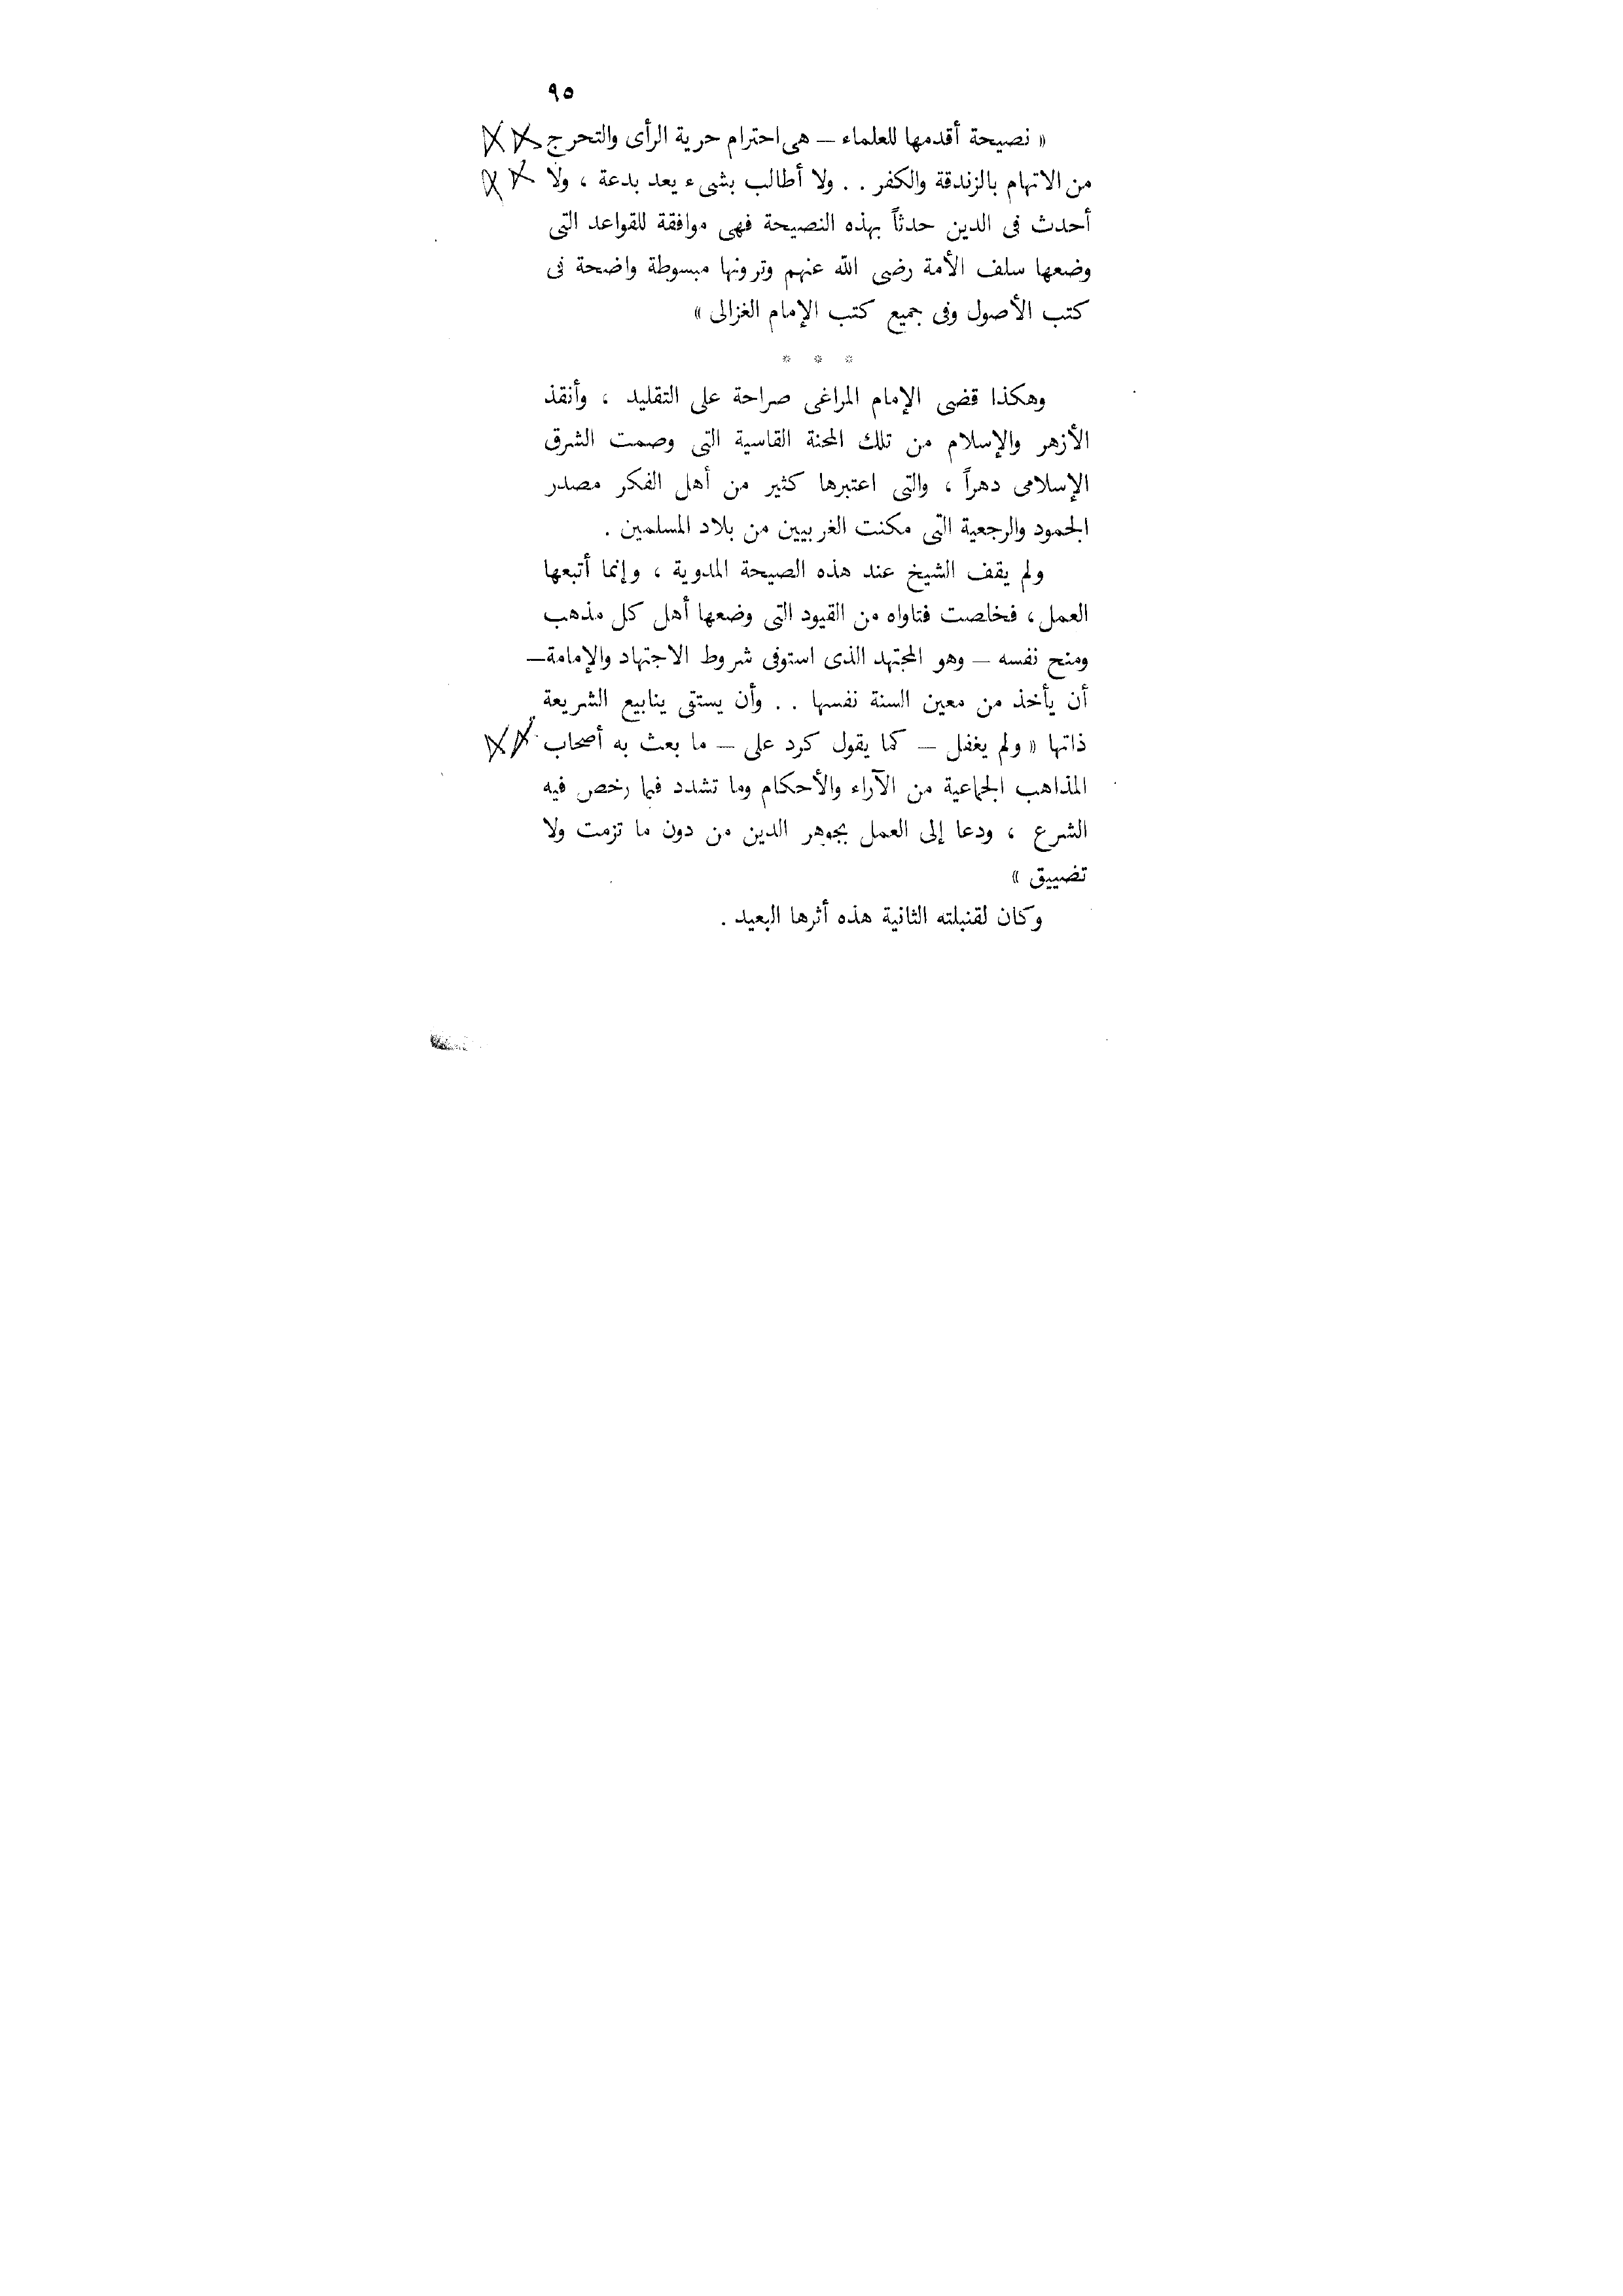 ٩٥
« نصيحة أقدمها للعلماء – هى احترام حرية الرأى والتحرج
من الاتهام بالزندقة والكفر . . ولا أطالب بشىء يعد بدعة ، ولا
أحدث فى الدين حدثاً بهذه النصيحة فهى موافقة للقواعد التى
وضعها سلف الأمة رضى الله عنهم وترونها مبسوطة واضحة فى
كتب الأصول وفى جميع كتب الإمام الغزالى »
* * *
وهكذا قضى الإمام المراغى صراحة على التقليد ، وأنقذ
الأزهر والإسلام من تلك المحنة القاسية التى وصمت الشرق
الإسلامى دهراً ، والتى اعتبرها كثير من أهل الفكر مصدر
الجمود والرجعية التى مكنت الغربيين من بلاد المسلمين .
ولم يقف الشيخ عند هذه الصيحة المدوية ، وإنما أتبعها
العمل ، فخلصت فتاواه من القيود التى وضعها أهل كل مذهب
ومنح نفسه – وهو المجتهد الذى استوفى شروط الاجتهاد والإمامة –
أن يأخذ من معين السنة نفسها . . وأن يستقى ينابيع الشريعة
ذاتها « ولم يغفل – كما يقول كرد على – ما بعث به أصحاب
المذاهب الجماعية من الآراء والأحكام وما تشدد فيما رخص فيه
الشرع ، ودعا إلى العمل بجوهر الدين من دون ما تزمت ولا
تضييق »
وكان لقنبلته الثانية هذه أثرها البعيد .